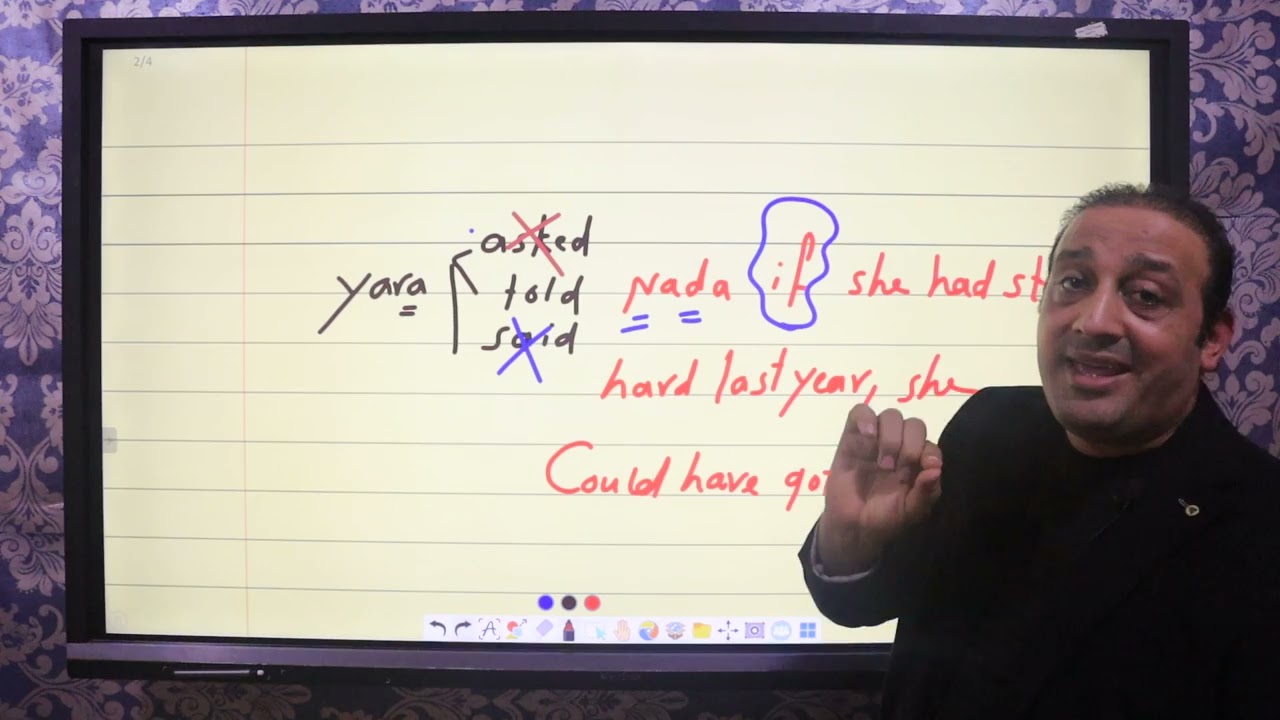 2/4
asked
yara told Nada if she had st
said
hard last year, she
Could have go